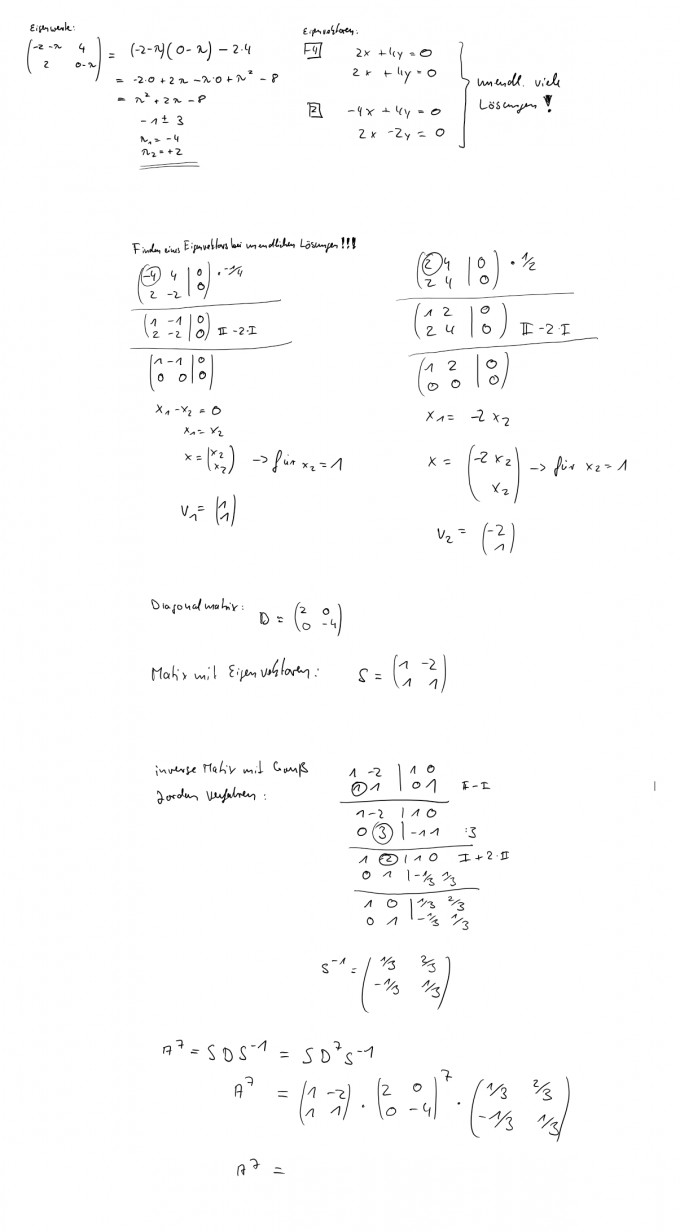 Eigenwerte:
(-2-λ 4
2 0-λ) = (-2-λ)(0-λ) - 2·4
= -2·0 + 2λ - λ·0 + λ² - 8
= λ² + 2λ - 8
-1 ± 3
λ₁ = -4
λ₂ = +2
Eigenvektoren:
-4 2x + 4y = 0
2x + 4y = 0
2 -4x + 4y = 0
2x - 2y = 0
unendl. viele
Lösungen!
Finden eines Eigenvektors bei unendlichen Lösungen!!!
(-4 4 | 0
2 -2 | 0) · -1/4
(1 -1 | 0
2 -2 | 0) II - 2·I
(1 -1 | 0
0 0 | 0)
x₁ - x₂ = 0
x₁ = x₂
x = (x₂
x₂) -> für x₂ = 1
v₁ = (1
1)
(2 4 | 0
2 4 | 0) · 1/2
(1 2 | 0
2 4 | 0) II - 2·I
(1 2 | 0
0 0 | 0)
x₁ = -2x₂
x = (-2x₂
x₂) -> für x₂ = 1
v₂ = (-2
1)
Diagonalmatrix: D = (2 0
0 -4)
Matix mit Eigenvektoren: S = (1 -2
1 1)
inverse Matix mit Gauß
Jordan Verfahren:
1 -2 | 1 0
1 1 | 0 1 II - I
1 -2 | 1 0
0 3 | -1 1 :3
1 -2 | 1 0 I + 2·II
0 1 | -1/3 1/3
1 0 | 1/3 2/3
0 1 | -1/3 1/3
S⁻¹ = (1/3 2/3
-1/3 1/3)
A⁷ = SDS⁻¹ = SD⁷S⁻¹
A⁷ = (1 -2
1 1) · (2 0
0 -4)⁷ · (1/3 2/3
-1/3 1/3)
A⁷ =